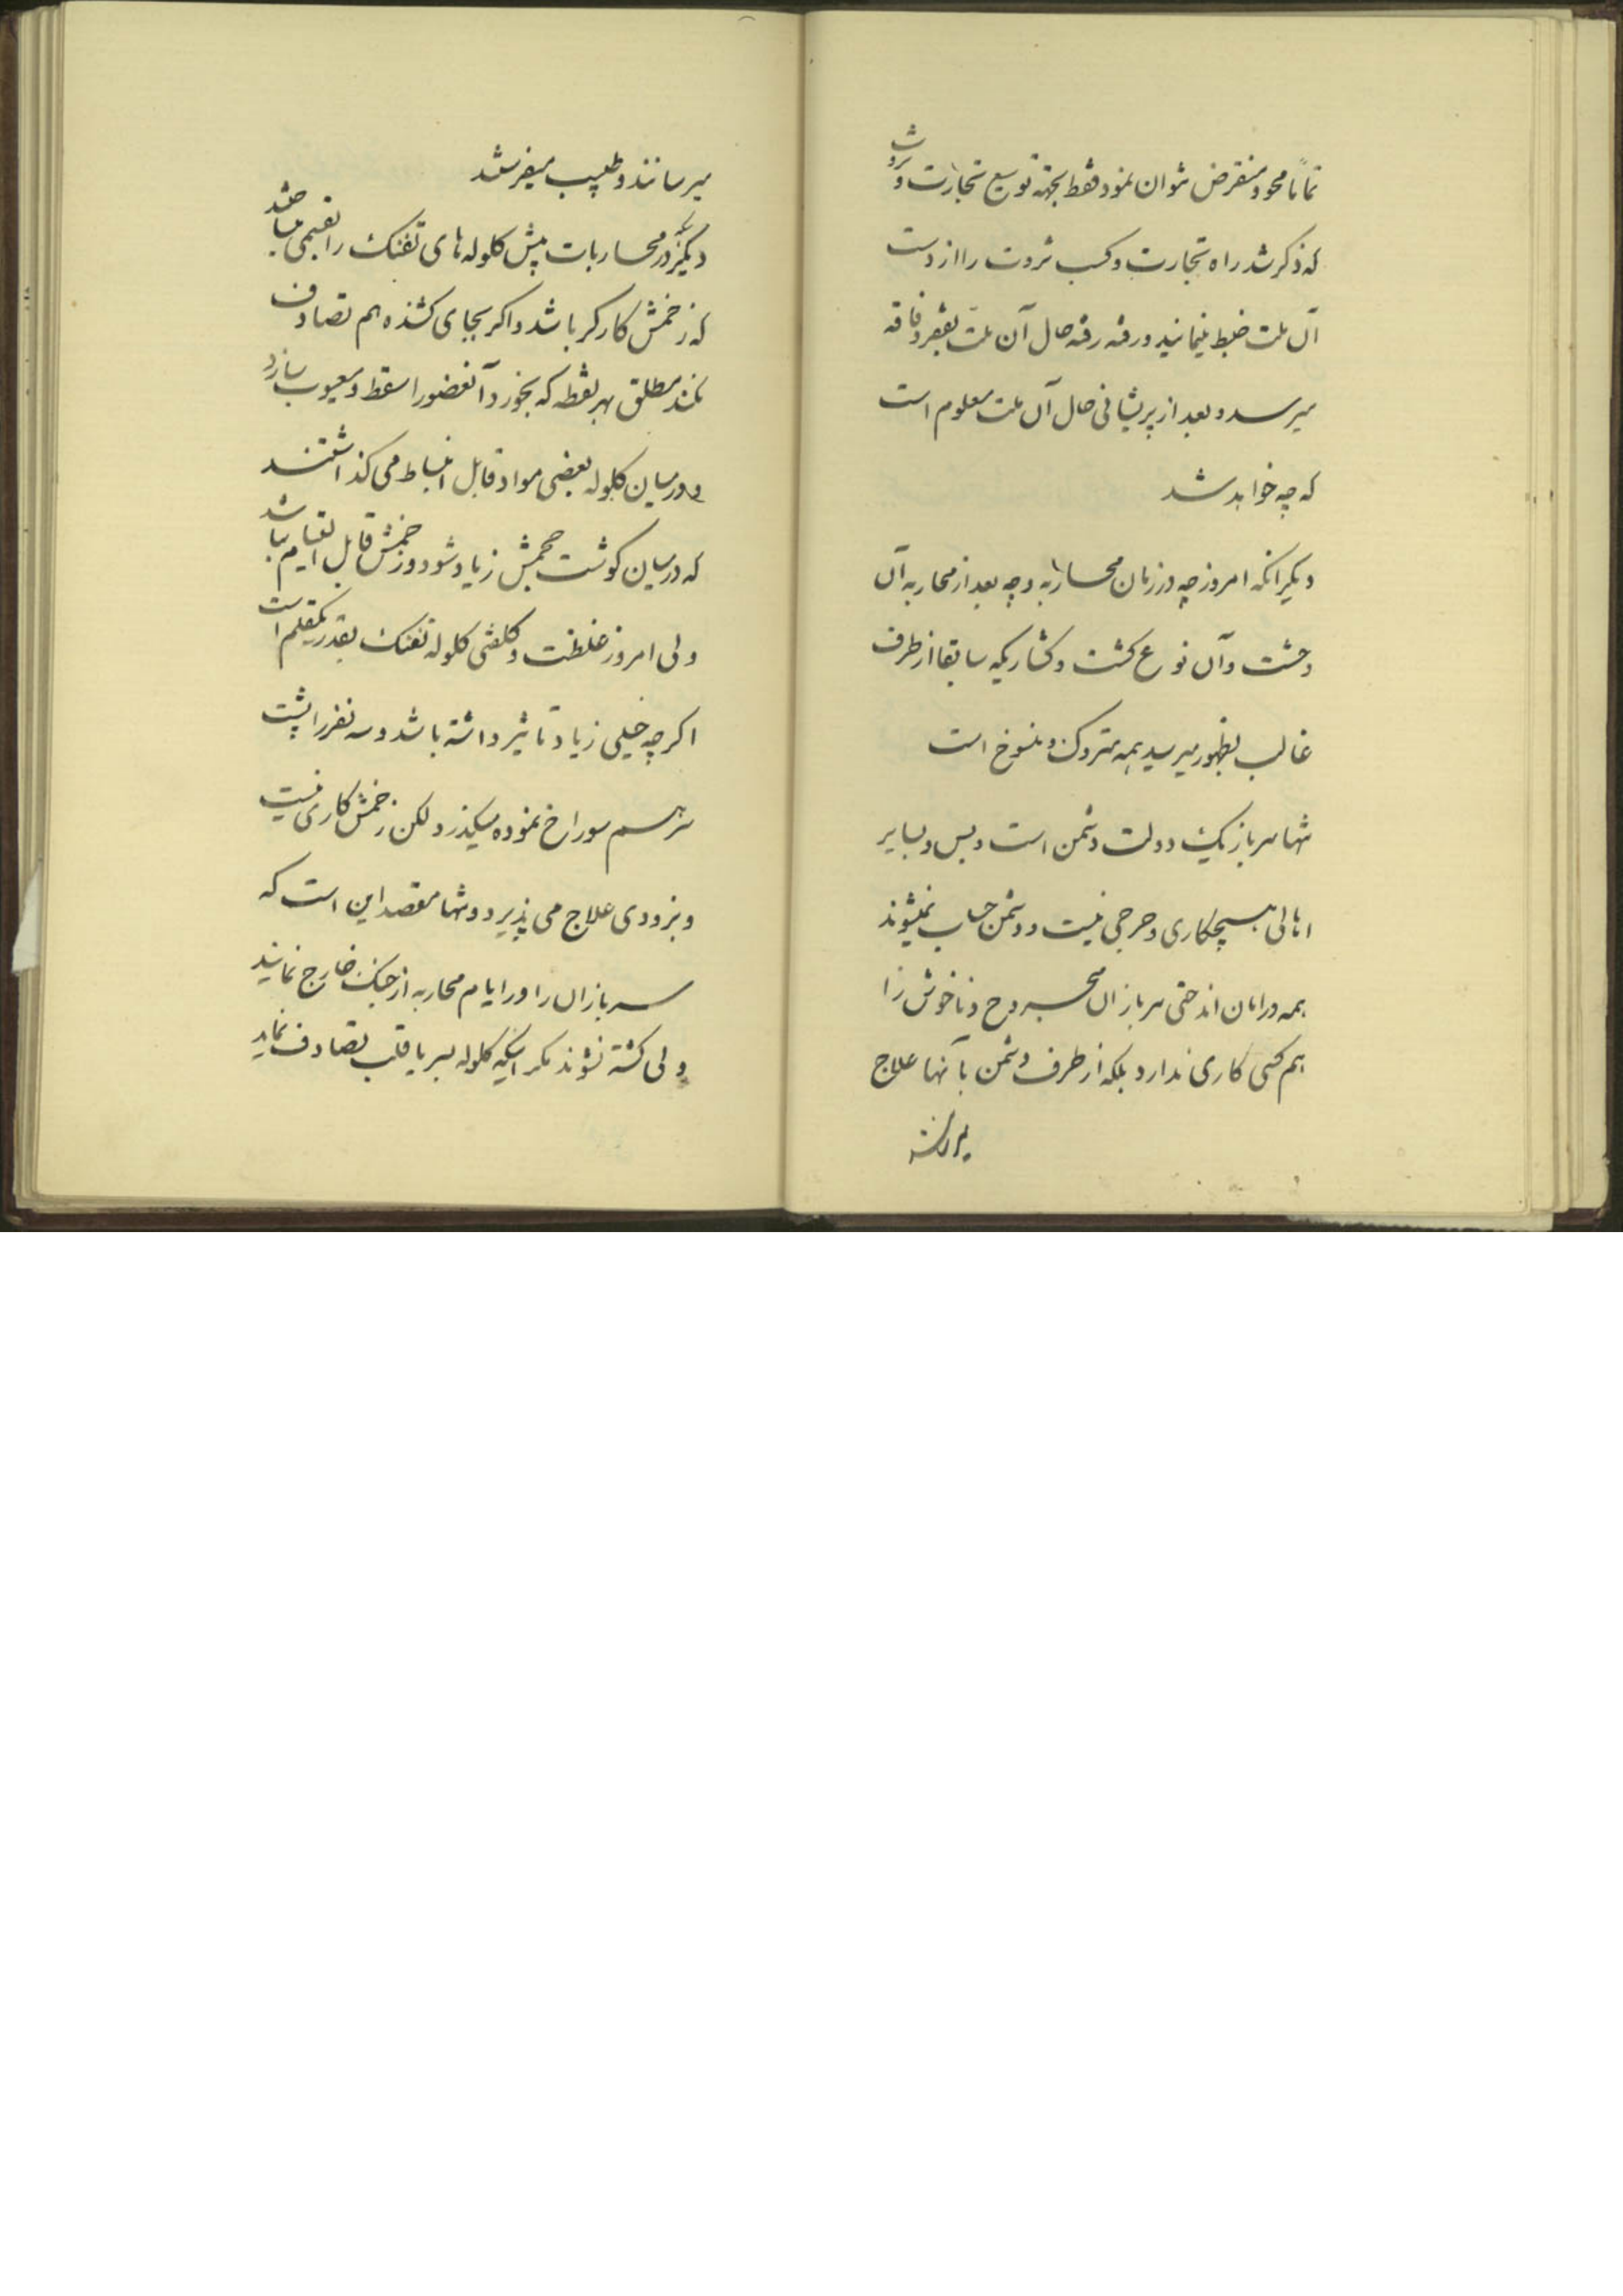 تماماً محو و منقرض نتوان نمود فقط بجهة توسیع تجارت و ثروت
که ذکر شد راه تجارت و کسب ثروت را از دست
آن ملت ضبط مینمایند و رفته رفته حال آن ملت بفقر و فاقه
میرسد و بعد از پریشانی حال آن ملت معلوم است
که چه خواهد شد
دیگر انکه امروز چه در زمان محاربه و چه بعد از محاربه آن
وحشت و آن نوع کشت و کشاریکه سابقا از طرف
غالب بظهور میرسید همه متروک و منسوخ است
تنها سرباز یک دولت دشمن است و بس و بسایر
اهالی هیچ کاری و حرجی نیست و دشمن حساب نمیشوند
همه در امان اند حتی سربازان مجروح و ناخوش را
هم کسی کاری ندارد بلکه از طرف دشمن بآنها علاج
میرسانند
میرسانند و طبیب میفرستند
دیگر در محاربات پیش کلوله های تفنک را میساختند
که زخمش کارکر باشد و اکر بجای کشنده هم تصادف
نکند مطلق بهر نقطه که بخورد آنعضو را سقط و معیوب سازد
و در میان کلوله بعضی مواد قابل انبساط می کذاشتند
که در میان کوشت حجمش زیاد شود و زخمش قابل التیام نباشد
ولی امروز غلظت و کلفتی کلوله تفنک بقدر یکقلم است
اکرچه خیلی زیاد تاثیر داشته باشد و سه نفر را پشت
سرهم سوراخ نموده میکذرد لکن زخمش کاری نیست
و بزودی علاج می پذیرد و تنها مقصد این است که
سربازان را در ایام محاربه از جنک خارج نمایند
ولی کشته نشوند مکر اینکه کلوله بسر یا قلب تصادف نماید